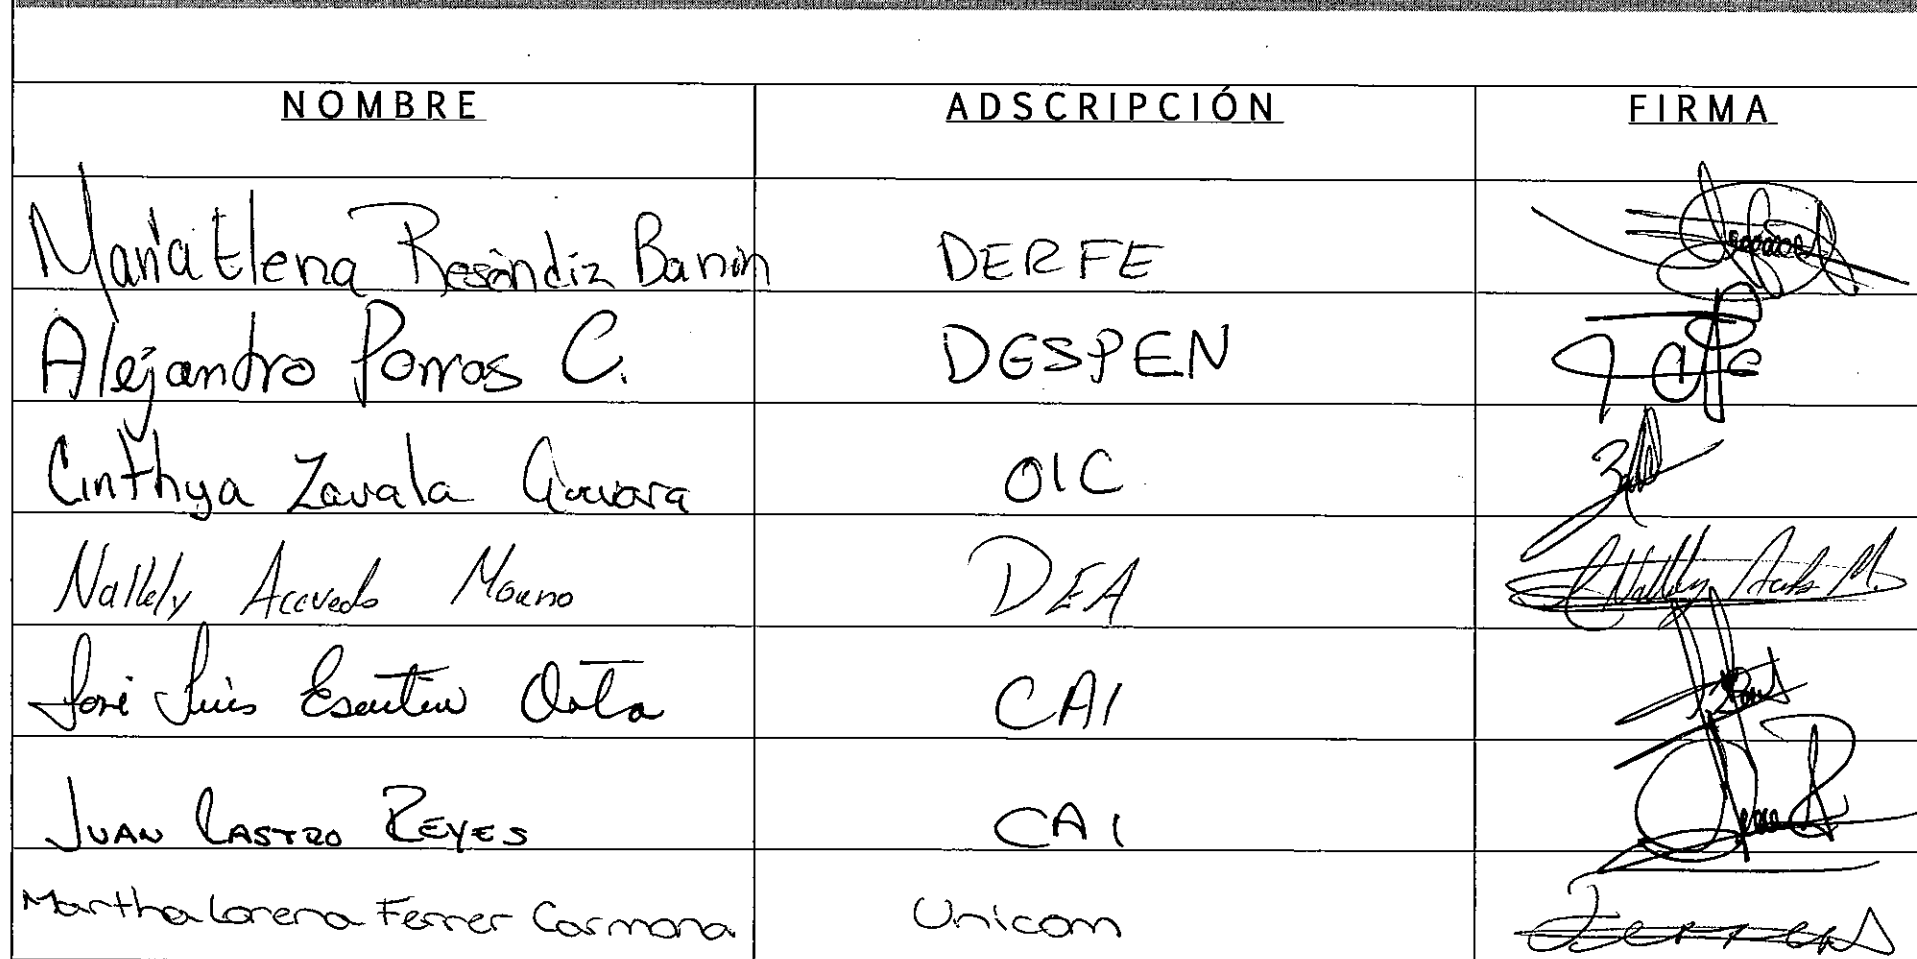 NOMBRE ADSCRIPCIÓN FIRMA
María Elena Reséndiz Banon DERFE
Alejandro Porras C. DESPEN
Cinthya Zavala Guevara OIC
Nallely Acevedo Moreno DEA Nallely Acevedo M.
José Luis CAI
JUAN CASTRO REYES CAI
Martha Lorena Ferrer Carmona Unicom